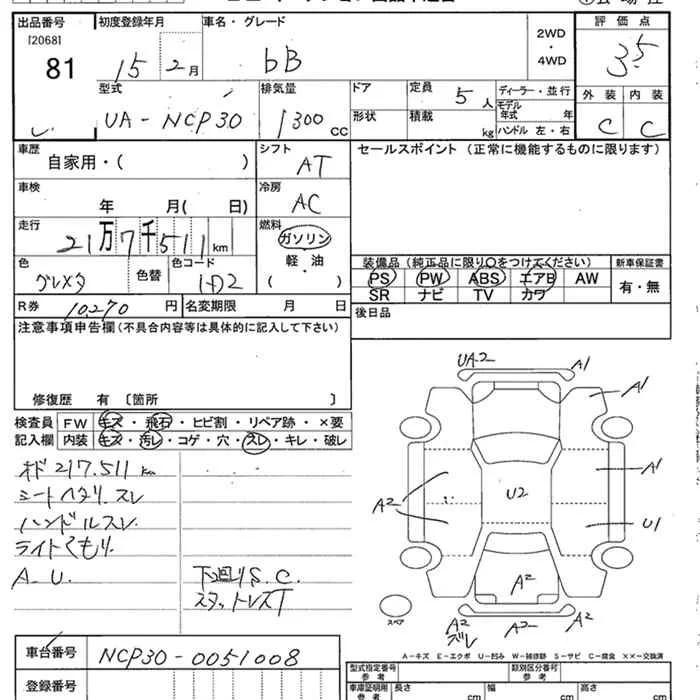 出品番号 初度登録年月 車名・グレード 2WD・4WD 評価点
[2068]
81 15年 2月 bB 3.5
型式 排気量 ドア 定員 5人 ディーラー・並行 外装 内装
UA-NCP30 1300cc 形状 積載 kg モデル年式 年 C C
ハンドル 左・右
車歴 自家用・( ) シフト AT セールスポイント (正常に機能するものに限ります)
車検 年 月( 日) 冷房 AC
走行 21万7千511km 燃料 ガソリン
軽・油
( )
色 グレメタ 色替 色コード 1D2
装備品 (純正品に限り○をつけてください) 新車保証書
PS PW ABS エアB AW 有・無
SR ナビ TV カワ
R券 10,270円 名変期限 月 日 後日品
注意事項申告欄(不具合内容等は具体的に記入して下さい)
修復歴 有 〔箇所 〕
検査員 FW キズ・飛石・ヒビ割・リペア跡・×要
記入欄 内装 キズ・汚レ・コゲ・穴・スレ・キレ・破レ
オド 217.511km
シートヘタリ.スレ
ハンドルスレ
ライトくもり.
A.U. 下回りS.C.
スタットレスT
UA-2 A1
A1
A1
A2 U2 U1
A2
A2 A2 A2
ズレ
スペア
A-キズ E-エクボ U-凹ミ W-補修跡 S-サビ C-腐食 ××-交換済
車台番号 NCP30-0051008
型式指定番号 参考 類別区分番号 参考
登録番号
車庫証明用 参考 長さ cm 幅 cm 高さ cm